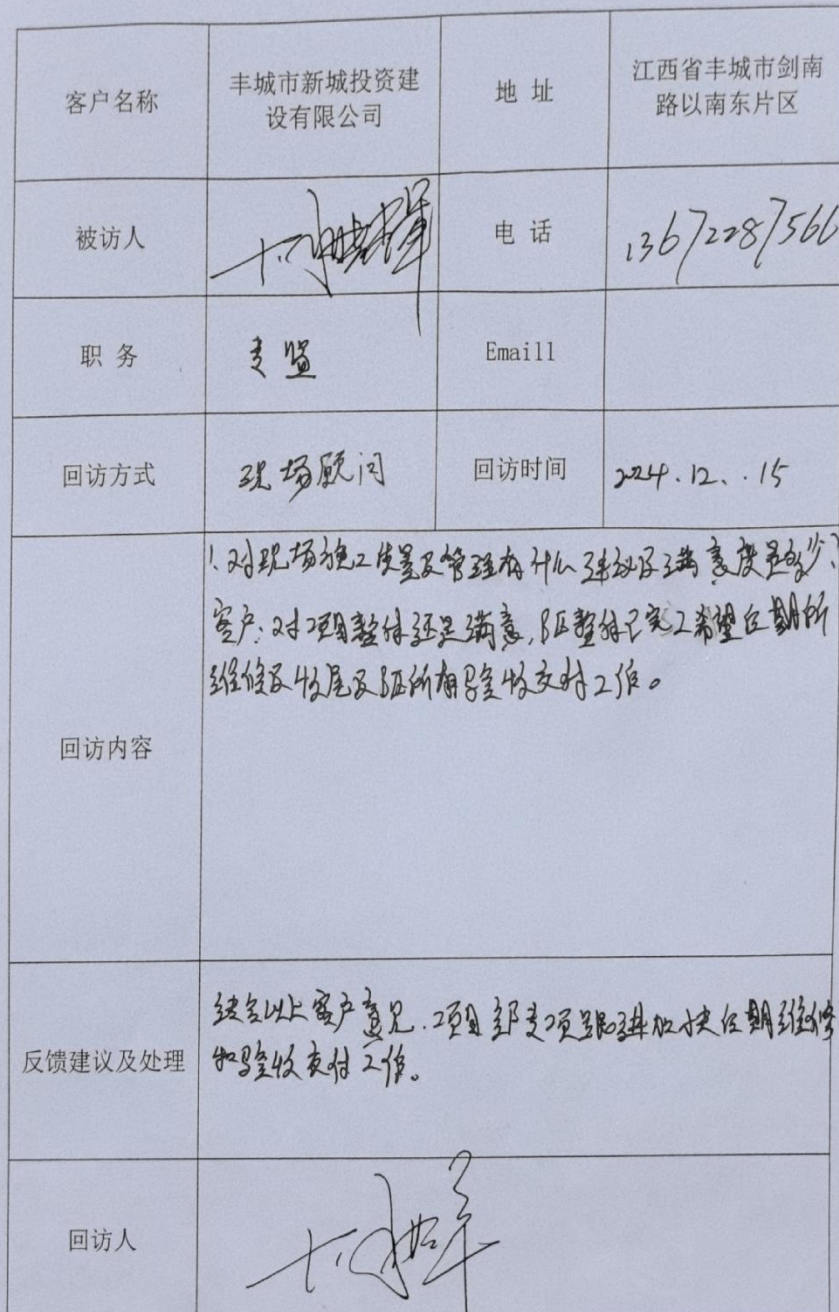 客户名称
丰城市新城投资建
设有限公司
地 址
江西省丰城市剑南
路以南东片区
被访人
电 话
13672287566
职 务
专监
Emaill
回访方式
现场顾问
回访时间
2024.12..15
回访内容
1.对现场施工质量及管理有什么建议及满意度是多少?
客户:对项目整体还是满意,整体已完工希望后期所
维修及收尾及所有验收交付工作。
反馈建议及处理
结合以上客户意见.项目部专项跟进加快后期维修
和验收交付工作。
回访人